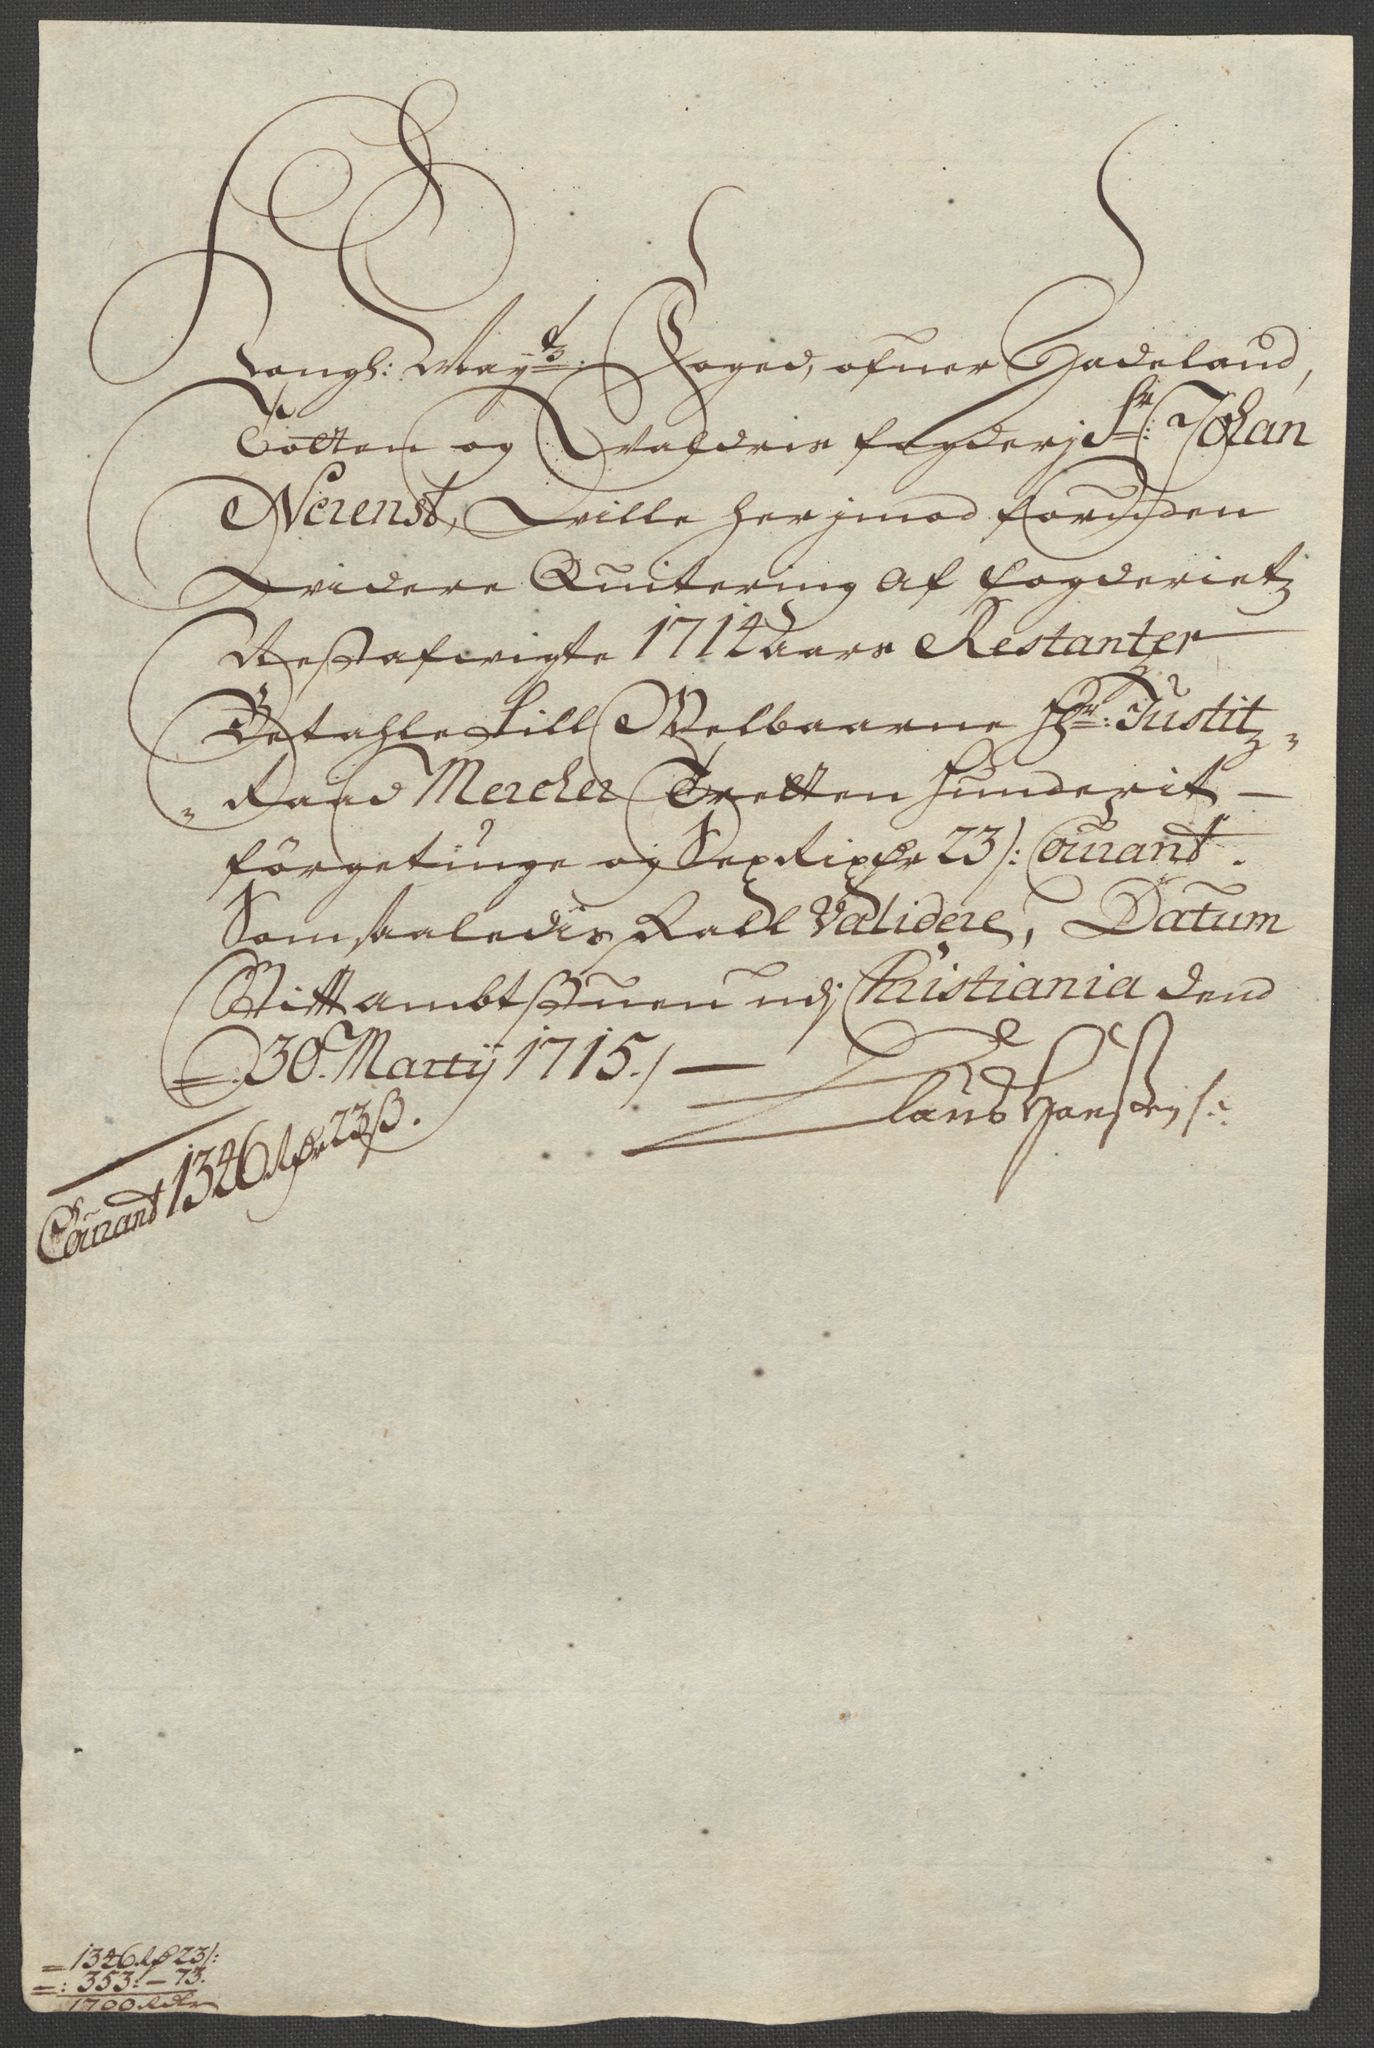 Kongl: May.ts: Foged, ofuer Hadeland,
Totten og Waldris fogderj Sr: Johan
Nerenst, Wille herjmod foruden
Widere Quitering af fogderietz
Restafwigte 1714 aars Restantzer
Betahle till Welbaarne Hr: Justitz-
Raad Mercher Tretten hunderit
förgetiuge og Sex Rixdr 23 s: Courant.
Som saaledis skall Validere, Datum
Stiftambtstuen udj Christiania dend
30. Martij 1715 ./.
Claus Hansen
Courant 1346 Rdr 23 ß.
1346 Rd 23 s:
: 353: - 73.
1700 Rdr